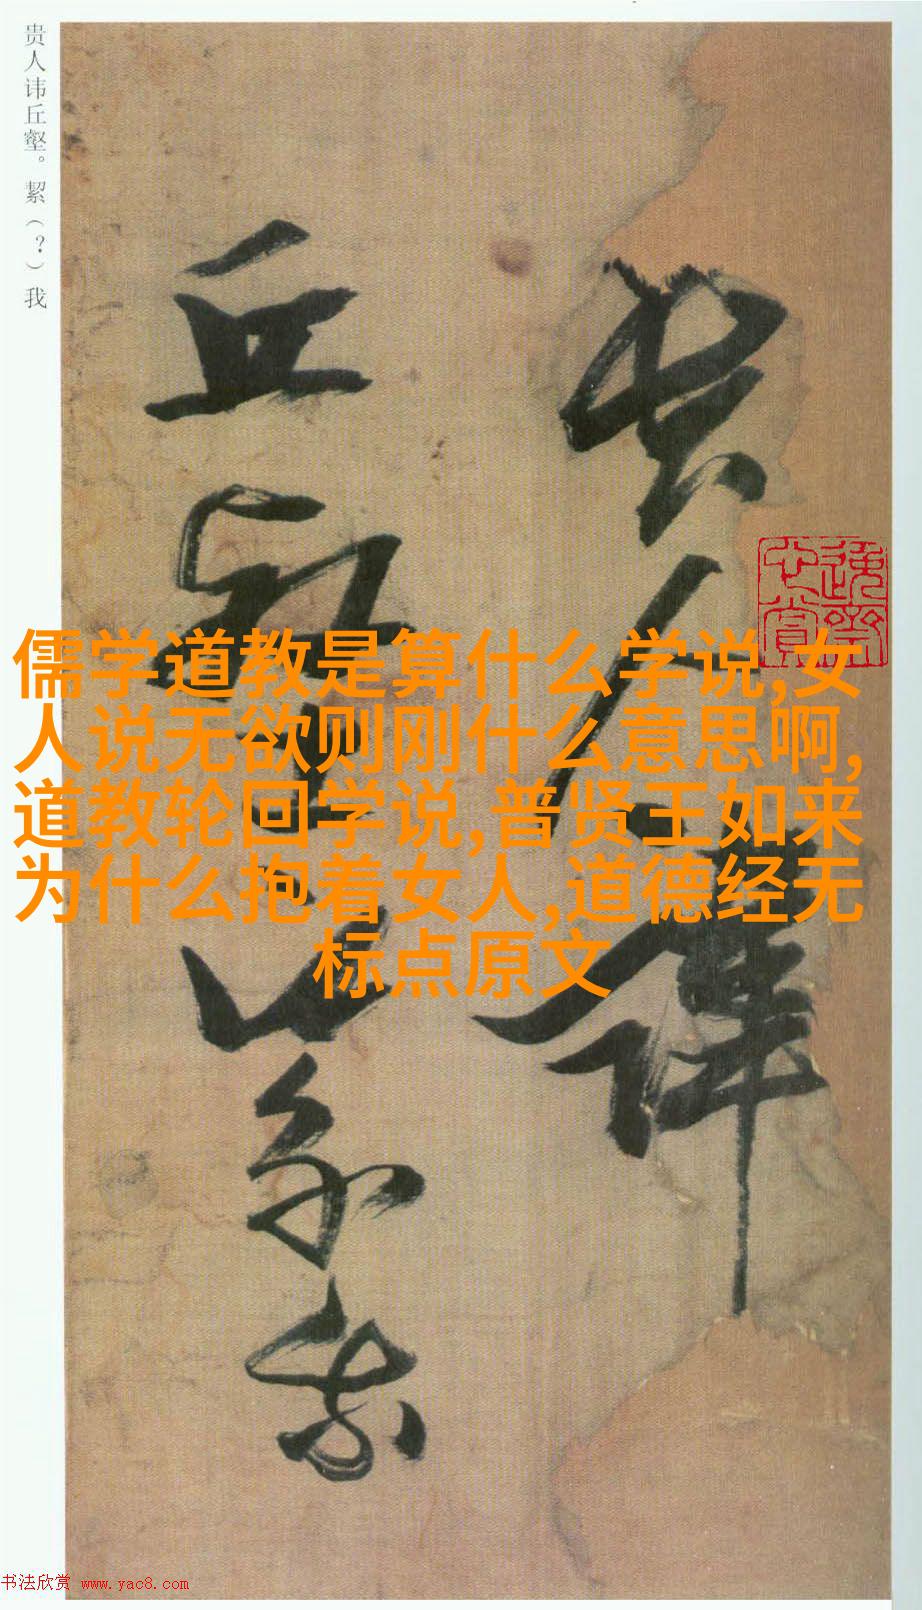 贵人讳丘壑。絜（？）我
贵人讳
丘壑。絜我
儒学道教是算什么学说,女
人说无欲则刚什么意思啊,
道教轮回学说,普贤王如来
为什么抱着女人,道德经无
标点原文
书法欣赏 www.yac8.com